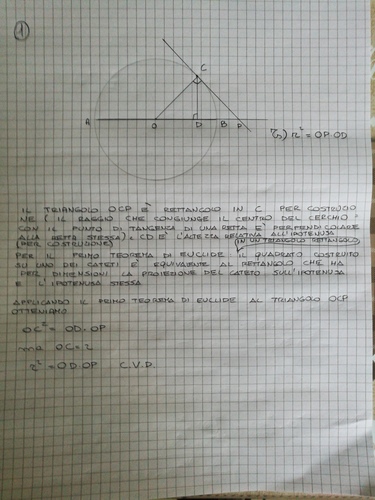 1
C
A O D B P
Th) r² = OP·OD
IL TRIANGOLO OCP È RETTANGOLO IN C PER COSTRUZIO
NE (IL RAGGIO CHE CONGIUNGE IL CENTRO DEL CERCHIO
CON IL PUNTO DI TANGENZA DI UNA RETTA È PERPENDICOLARE
ALLA RETTA STESSA). CD È L'ALTEZZA RELATIVA ALL'IPOTENUSA
(PER COSTRUZIONE) IN UN TRIANGOLO RETTANGOLO
PER IL PRIMO TEOREMA DI EUCLIDE IL QUADRATO COSTRUITO
SU UNO DEI CATETI È EQUIVALENTE AL RETTANGOLO CHE HA
PER DIMENSIONI LA PROIEZIONE DEL CATETO SULL'IPOTENUSA
E L'IPOTENUSA STESSA
APPLICANDO IL PRIMO TEOREMA DI EUCLIDE AL TRIANGOLO OCP
OTTENIAMO
OC² = OD·OP
ma OC = r
r² = OD·OP C.V.D.